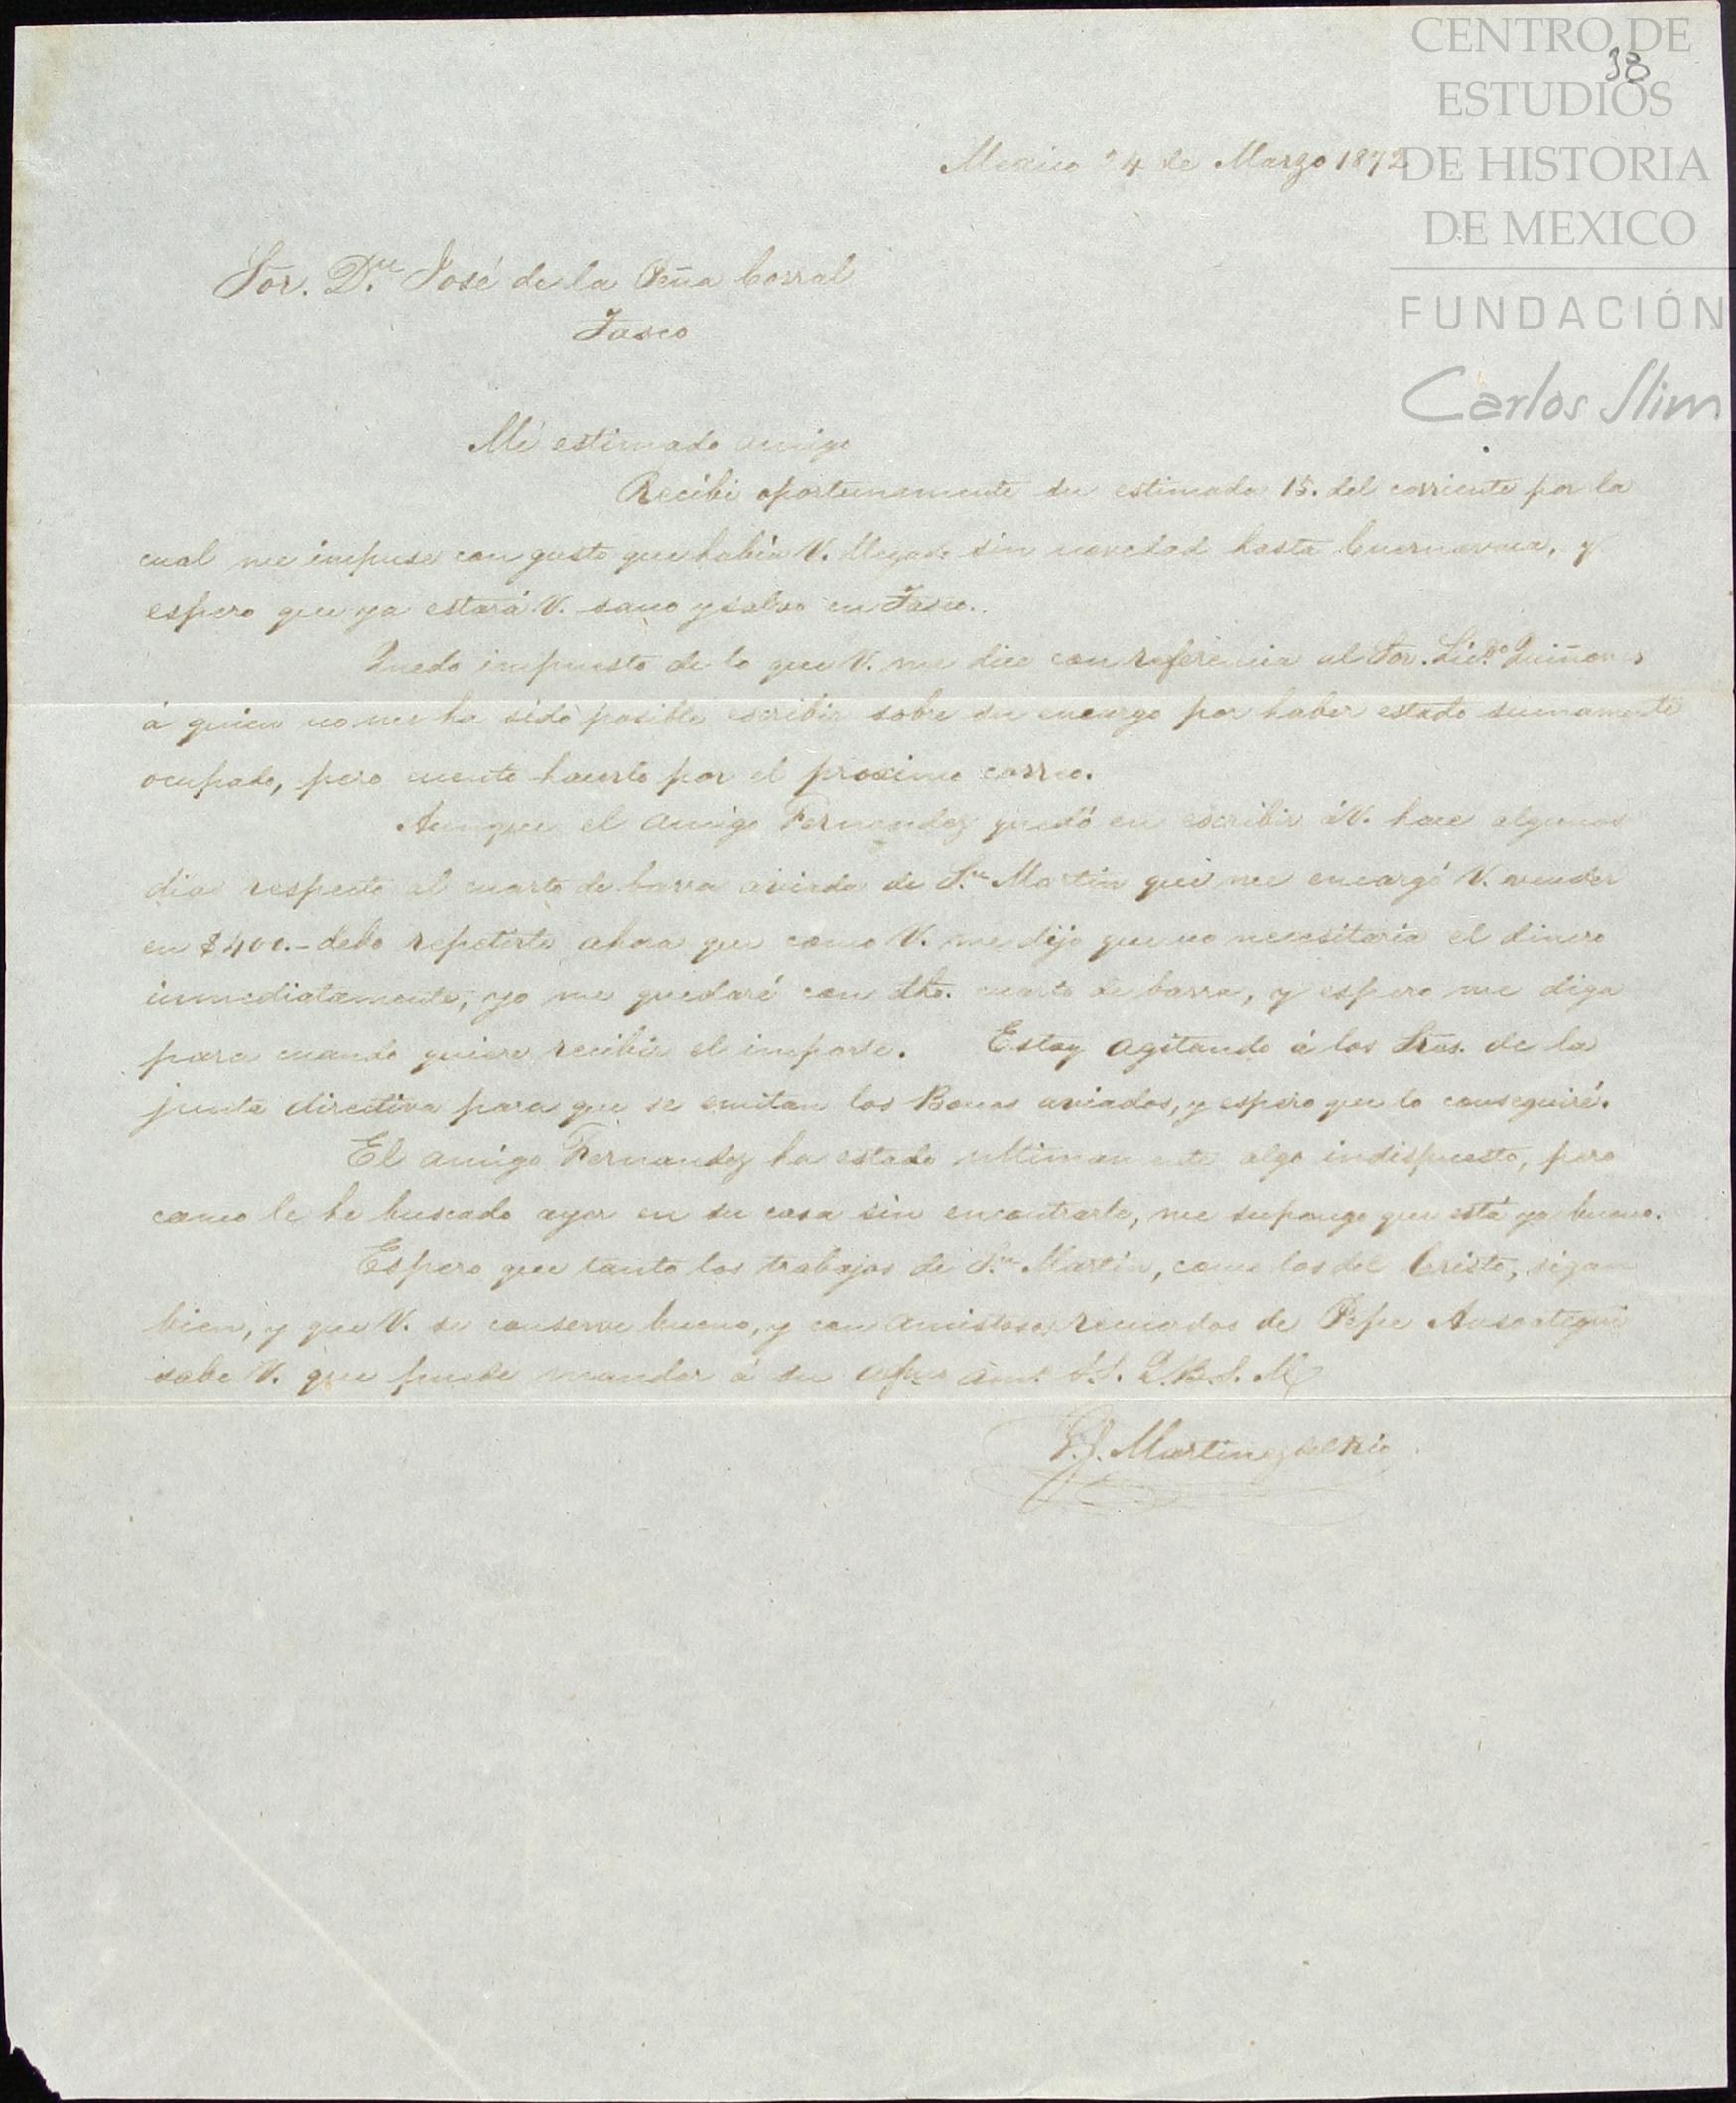 CENTRO DE
ESTUDIOS
DE HISTORIA
DE MEXICO
FUNDACIÓN
Carlos Slim
38
Mexico 24 de Marzo 1872
Sor. Dn. José de la Peña Corral
Tasco
Mi estimado amigo
Recibi oportunamente su estimada 15. del corriente por la
cual me impuse con gusto que había V. llegado sin novedad hasta Cuernavaca, y
espero que ya estará V. sano y salvo en Tasco.
Quedo impuesto de lo que V. me dice con referencia al Sor. Licdo. Quiñones
á quien no me ha sido posible escribir sobre su encargo por haber estado sumamente
ocupado, pero cuento hacerlo por el proximo correo.
Aunque el amigo Fernandez quedó en escribir á V. hace algunos
dias respecto al cuarto de barra aviada de Sn. Martin que me encargó V. vender
en $400.- debo repetirle ahora que como V. me dijo que no necesitaria el dinero
inmediatamente, yo me quedaré con dho. cuarto de barra, y espero me diga
para cuando quiere recibir el importe. Estoy agitando á los Sres. de la
junta directiva para que se emitan los Bonos aviados, y espero que lo conseguiré.
El amigo Fernandez ha estado ultimamente algo indispuesto, pero
como le he buscado ayer en su casa sin encontrarle, me supongo que está ya bueno.
Espero que tanto los trabajos de Sn. Martin, como los del Cristo, sigan
bien, y que V. se conserve bueno, y con amistosos recuerdos de Pepe
sabe V. que puede mandar á su amo. S.S. Q.B.S.M.
Martinez del Rio